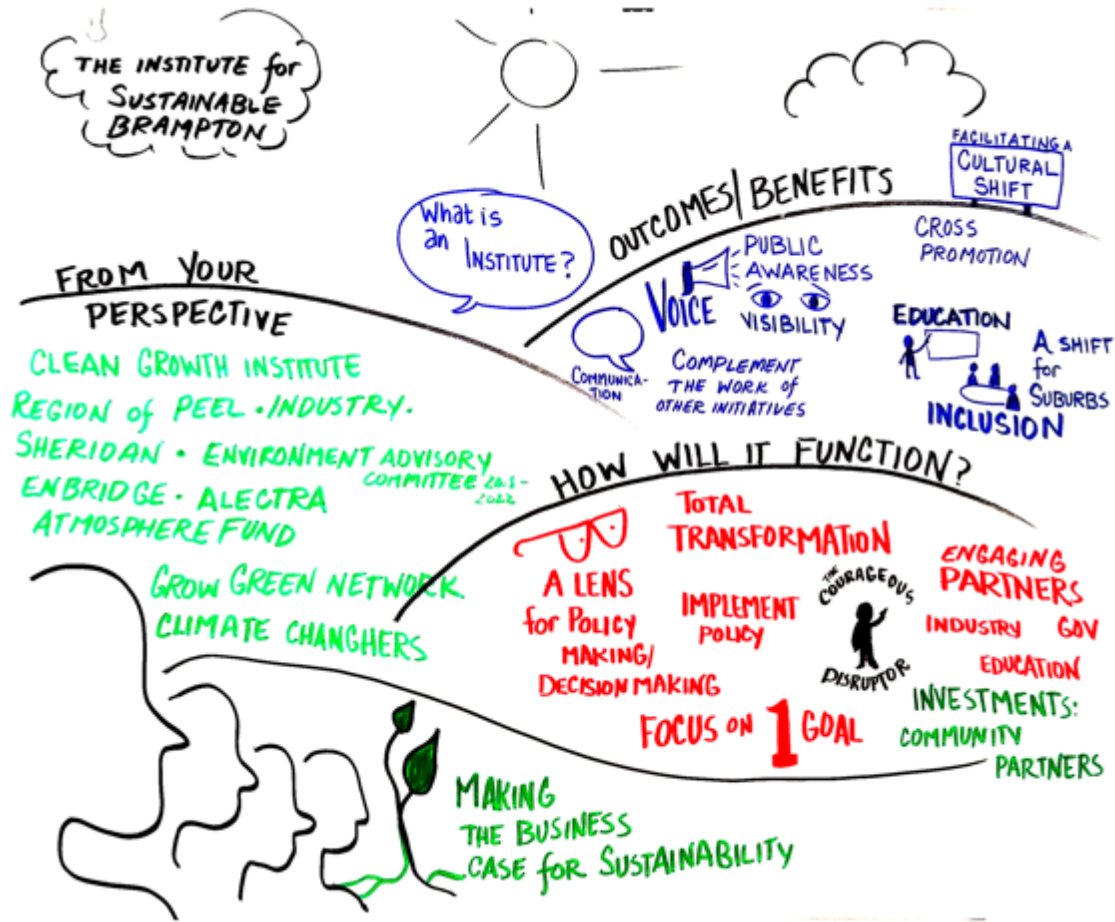 THE INSTITUTE for
SUSTAINABLE
BRAMPTON
What is
an INSTITUTE?
FROM YOUR
PERSPECTIVE
CLEAN GROWTH INSTITUTE
REGION of PEEL · INDUSTRY.
SHERIDAN · ENVIRONMENT ADVISORY
COMMITTEE
2022
ENBRIDGE · ALECTRA
ATMOSPHERE FUND
GROW GREEN NETWORK
CLIMATE CHANGHERS
OUTCOMES/BENEFITS
FACILITATING A
CULTURAL
SHIFT
CROSS
PROMOTION
PUBLIC
AWARENESS
VOICE
VISIBILITY
COMMUNICA-
TION
COMPLEMENT
THE WORK of
OTHER INITIATIVES
EDUCATION
INCLUSION
A SHIFT
for
SUBURBS
HOW WILL IT FUNCTION?
A LENS
for POLICY
MAKING/
DECISION MAKING
TOTAL
TRANSFORMATION
IMPLEMENT
POLICY
THE
COURAGEOUS
DISRUPTOR
ENGAGING
PARTNERS
INDUSTRY GOV
EDUCATION
FOCUS ON 1 GOAL
INVESTMENTS:
COMMUNITY
PARTNERS
MAKING
THE BUSINESS
CASE for SUSTAINABILITY